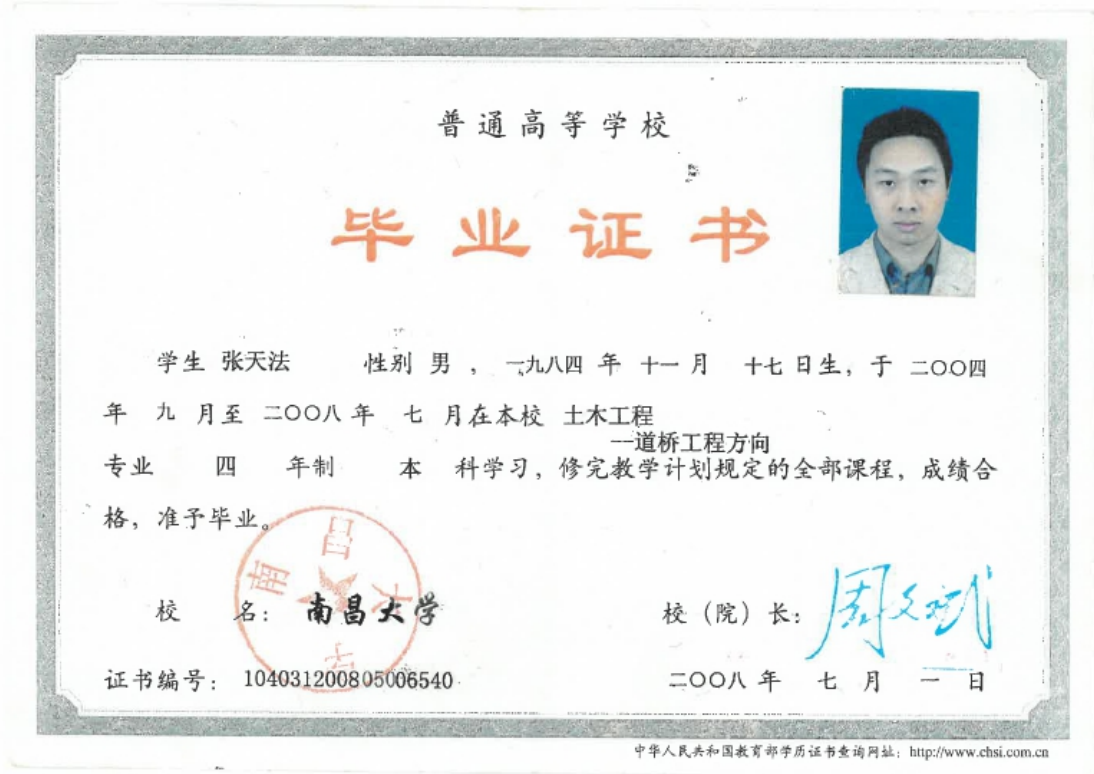 普通高等学校
毕业证书
学生 张天法 性别 男 , 一九八四 年 十一 月 十七 日生，于 二〇〇四
年 九 月至 二〇〇八 年 七 月在本校 土木工程
--道桥工程方向
专业 四 年制 本 科学习，修完教学计划规定的全部课程，成绩合
格，准予毕业。
南昌大学
校 名： 南昌大学
校（院）长： 周文斌
证书编号： 104031200805006540
二〇〇八 年 七 月 一 日
中华人民共和国教育部学历证书查询网址：http://www.chsi.com.cn